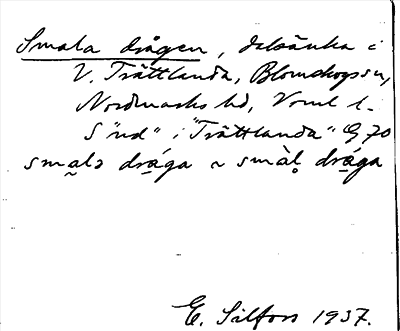 Smala drågen, delsänka i
V. Trättlanda, Blomskogs sn,
Nordmarks hd, Vrml l.
S "nd" i "Trättlanda" G 70
sma̰lə drá̱ga ~ smàl̥ drá̱ga
E. Sälfors 1937.